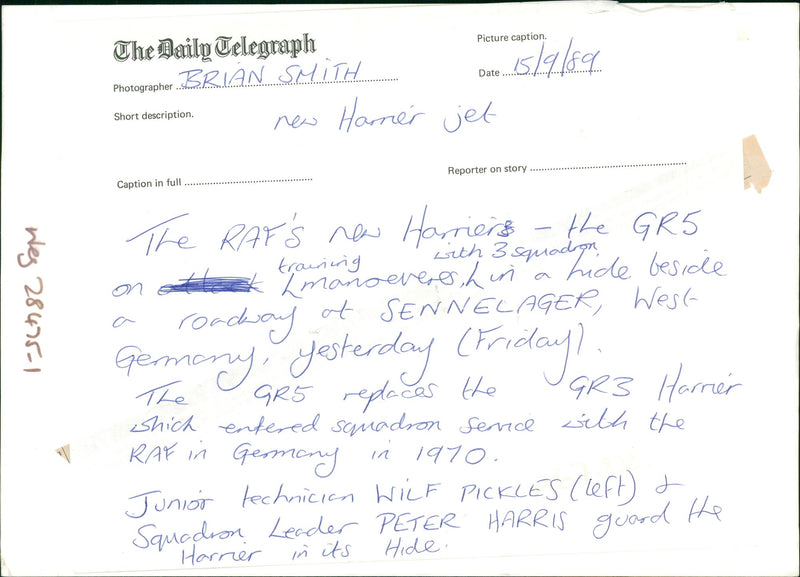 The Daily Telegraph
Picture caption.
Photographer BRIAN SMITH
Date 15/9/89
Short description.
new Harrier jet
Reporter on story
Caption in full
The RAF'S new Harriers - the GR5
on training manoeveres, with 3 squadron in a hide beside
a roadway at SENNELAGER, West
Germany, yesterday (Friday).
The GR5 replaces the GR3 Harrier
which entered squadron service with the
RAF in Germany in 1970.
Junior technician WILF PICKLES (left) &
Squadron Leader PETER HARRIS guard the
Harrier in its Hide.
neg 28475-1